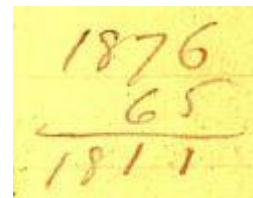 1876
65
1811